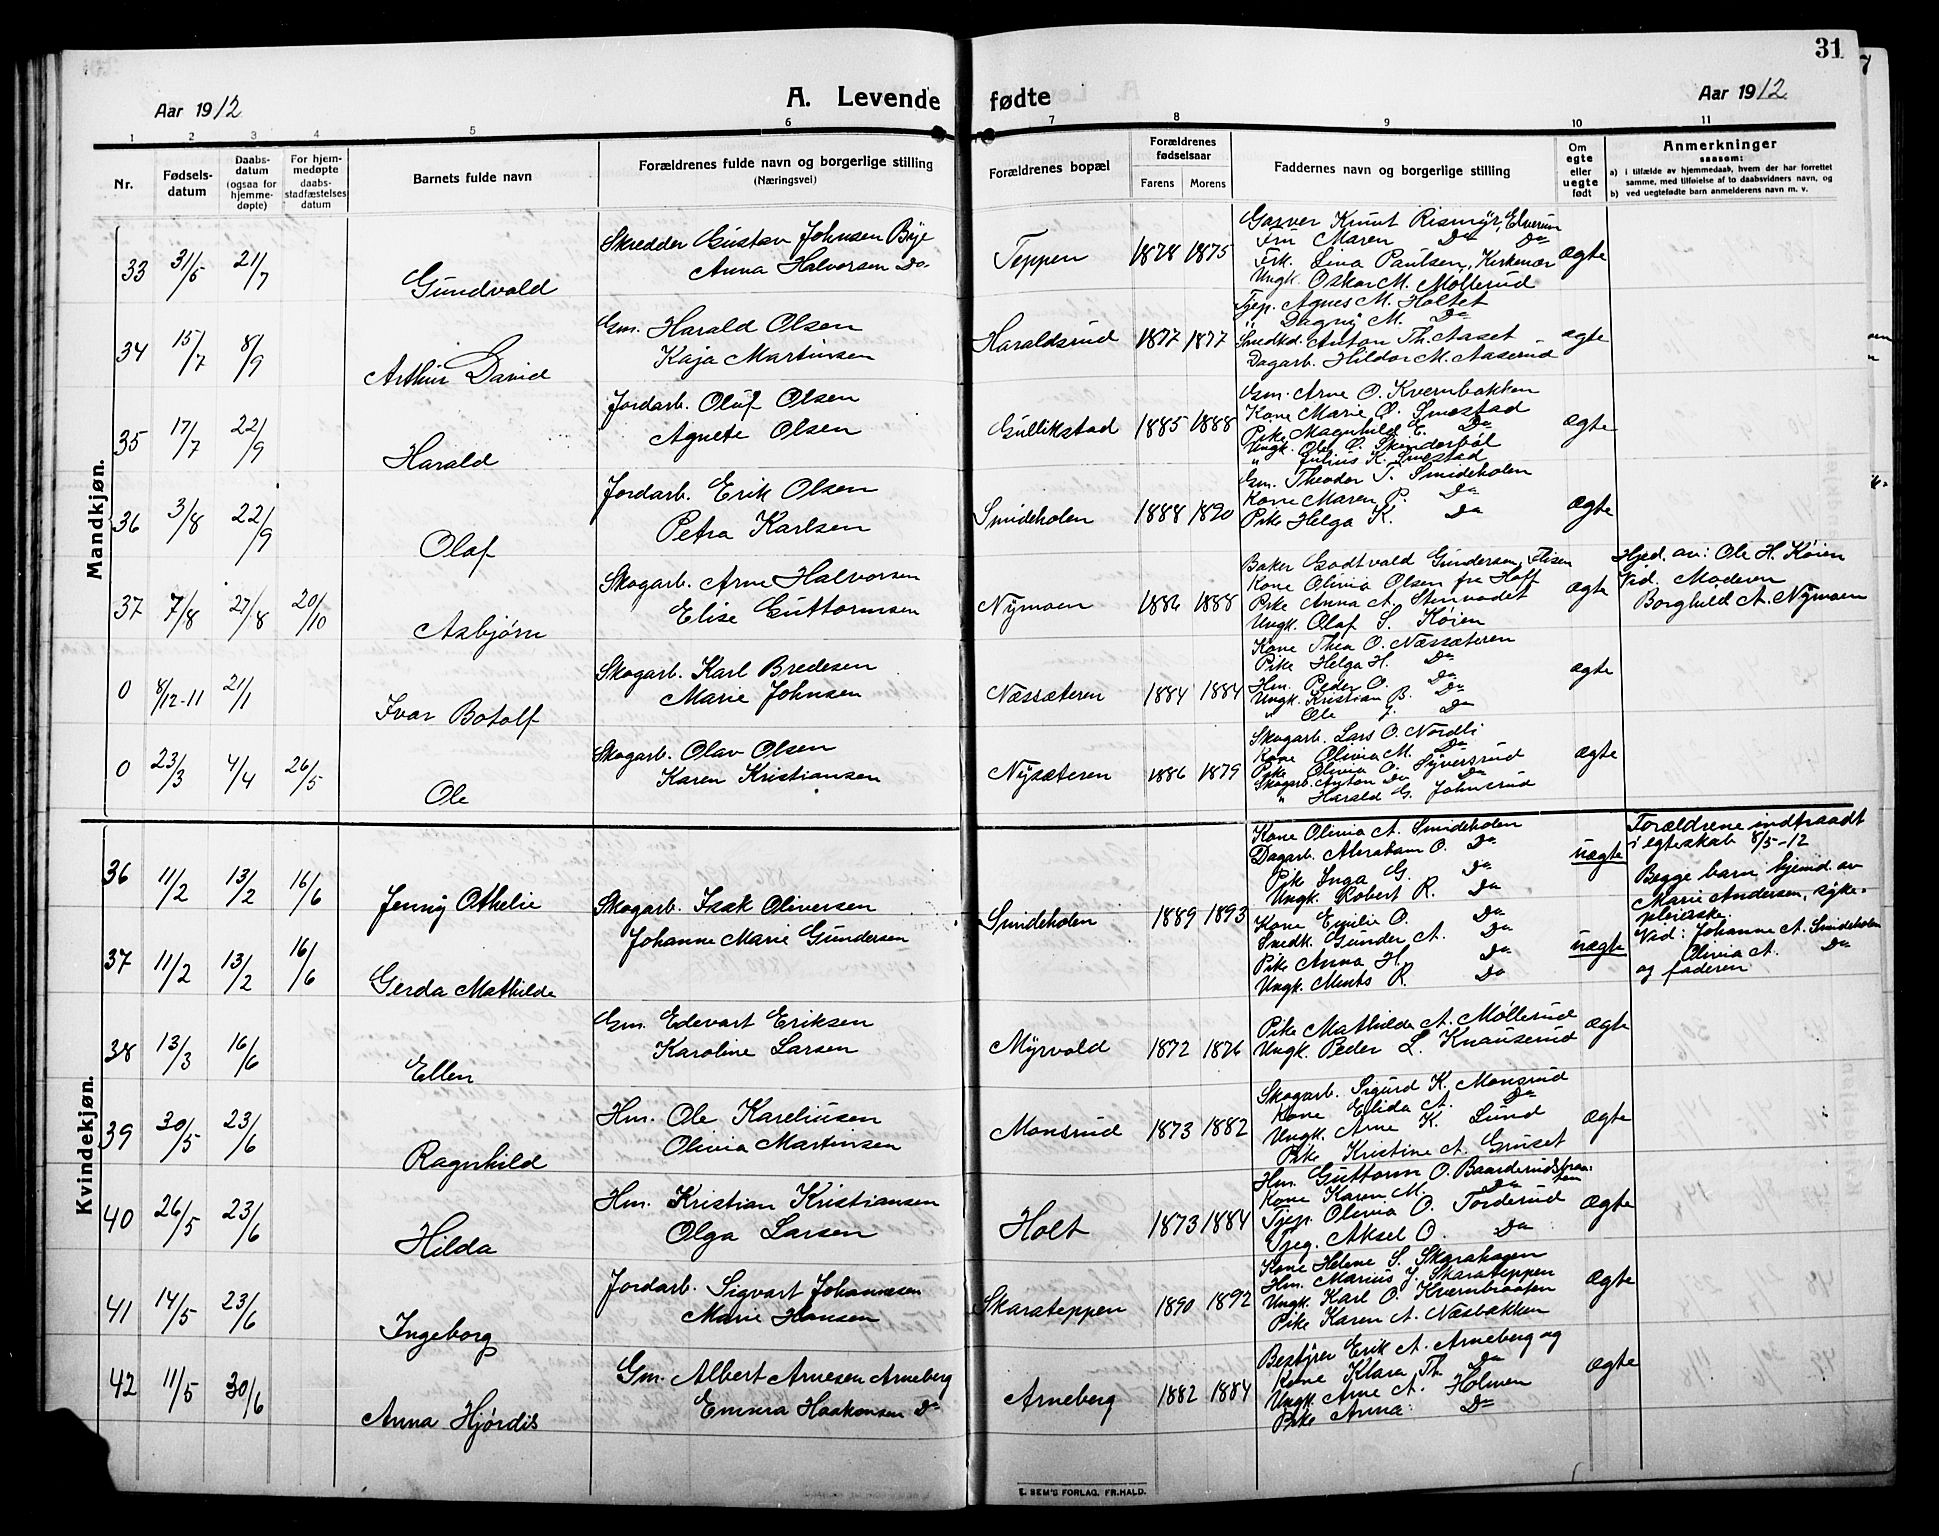 31
Aar 1912
A. Levende fødte
Aar 1912
1 2 3 4 5 6 7 8 9 10 11
Nr.
Fødsels-datum
Daabs-datum (ogsaa for hjemme-døpte)
For hjem-medøpte daabs-stadfæstelses datum
Barnets fulde navn
Forældrenes fulde navn og borgerlige stilling
(Næringsvei)
Forældrenes bopæl
Forældrenes fødselsaar
Farens Morens
Faddernes navn og borgerlige stilling
Om egte eller uegte født
Anmerkninger
saasom:
a) i tilfælde av hjemmedaab, hvem der har forrettet
samme, med tilføielse af to daabsvidners navn, og
b) ved uegtefødte barn anmelderens navn m. v.
Mandkjøn.
33 31/5 21/7 Gundvald
Skredder Gustav Johnsen Bye
Anna Halvorsen Do.
Teppen 1878 1875
Garver Knut Rismyr, Elverum
Fru Maren Do Do
Frk. Lina Paulsen, Kirkenær
Ungk. Oskar M. Møllerud
Ægte
34 15/7 8/9 Arthur David
Gm. Harald Olsen
Kaja Martinsen
Haraldsrud 1877 1877
Tjep. Agnes M. Holtet
" Dagny M. Do
Smedkd. Anton Th. Aaset
Dagarb. Hildor M. Aaserud
Ægte
35 17/7 22/9 Harald
Jordarb. Oluf Olsen
Agnete Olsen
Gullikstad 1885 1888
Gm. Arne O. Kvernbakken
Kone Marie O. Smestad
Pike Magnhild E. Do
Ungk. Ole O. Skinderbøl
" Julius K. Smestad
Ægte
36 3/8 22/9 Olaf
Jordarb. Erik Olsen
Petra Karlsen
Smideholen 1888 1890
Gm. Theodor T. Smideholen
Kone Maren P. Do
Pike Helga K. Do
Ægte
37 7/8 27/8 20/10 Asbjørn
Skogarb. Arne Halvorsen
Elise Guttormsen
Nymoen 1886 1888
Baker Godtvald Gundersen, Flisen
Kone Olivia Olsen fra Hoff
Pike Anna A. Stenvadet
Ungk. Olaf S. Køien
Ægte
Hjed. av: Ole H. Køien
Vid. Moderen
Borghild A. Nymoen
0 8/12-11 21/1 Ivar Botolf
Skogarb. Karl Bredesen
Marie Johnsen
Næssæteren 1884 1884
Kone Thea O. Næssæteren
Pike Helga H. Do
Hm. Peder O. Do
Ungk. Kristian B. Do
" Ole J. Do
Ægte
0 23/3 4/4 26/5 Ole
Skogarb. Olav Olsen
Karen Kristiansen
Nysæteren 1886 1879
Skogarb. Lars O. Nordli
Kone Olivia M. Do
Pike Olivia O. Syversrud
Skogarb. Anton Do Do
" Harald G. Johnsrud
Ægte
Kvindekjøn.
36 11/2 13/2 16/6 Jenny Othelie
Skogarb. Isak Oliversen
Johanne Marie Gundersen
Smideholen 1889 1893
Kone Olivia A. Smideholen
Dagarb. Abraham O. Do
Pike Inga G. Do
Ungk. Robert R. Do
uægte
Forældrene indtraadt
i egteskab 8/5-12
Begge barn hjemd. av
Marie Andersen, syke-
pleierske.
Vid: Johanne A. Smideholen
Olivia A. Do
og faderen
37 11/2 13/2 16/6 Gerda Mathilde
Kone Emilie O. Do
Smedk. Gunder A. Do
Pike Anna H. Do
Ungk. Ments R. Do
uægte
38 13/3 16/6 Ellen
Gm. Edevart Eriksen
Karoline Larsen
Myrvold 1872 1876
Pike Mathilde A. Møllerud
Ungk. Peder L. Knauserud
Ægte
39 30/5 23/6 Ragnhild
Hm. Ole Kareliusen
Olivia Martinsen
Monsrud 1873 1882
Skogarb. Sigurd K. Monsrud
Kone Elida A. Do
Ungk. Arne K. Lund
Pike Kristine A. Gruset
Ægte
40 26/5 23/6 Hilda
Hm. Kristian Kristiansen
Olga Larsen
Holt 1873 1884
Hm. Guttorm O. Baarderudsbraaten
Kone Karen M. Do
Tjep. Olivia O. Torderud
Tjeg. Aksel O. Do
Ægte
41 14/5 23/6 Ingeborg
Jordarb. Sigvart Johannesen
Marie Hansen
Skarateppen 1890 1892
Kone Helene S. Skarahagen
Hm. Marius J. Skarateppen
Ungk. Karl O. Kvernbraaten
Pike Karen A. Næsbakken
Ægte
42 11/5 30/6 Anna Hjørdis
Gm. Albert Arnesen Arneberg
Emma Haakonsen Do
Arneberg 1882 1884
Bestyrer Erik A. Arneberg og
Kone Klara Th. Do
Ungk. Arne A. Holmen
Pike Anna Do
Ægte
E. SEM'S FORLAG. FR.HALD.